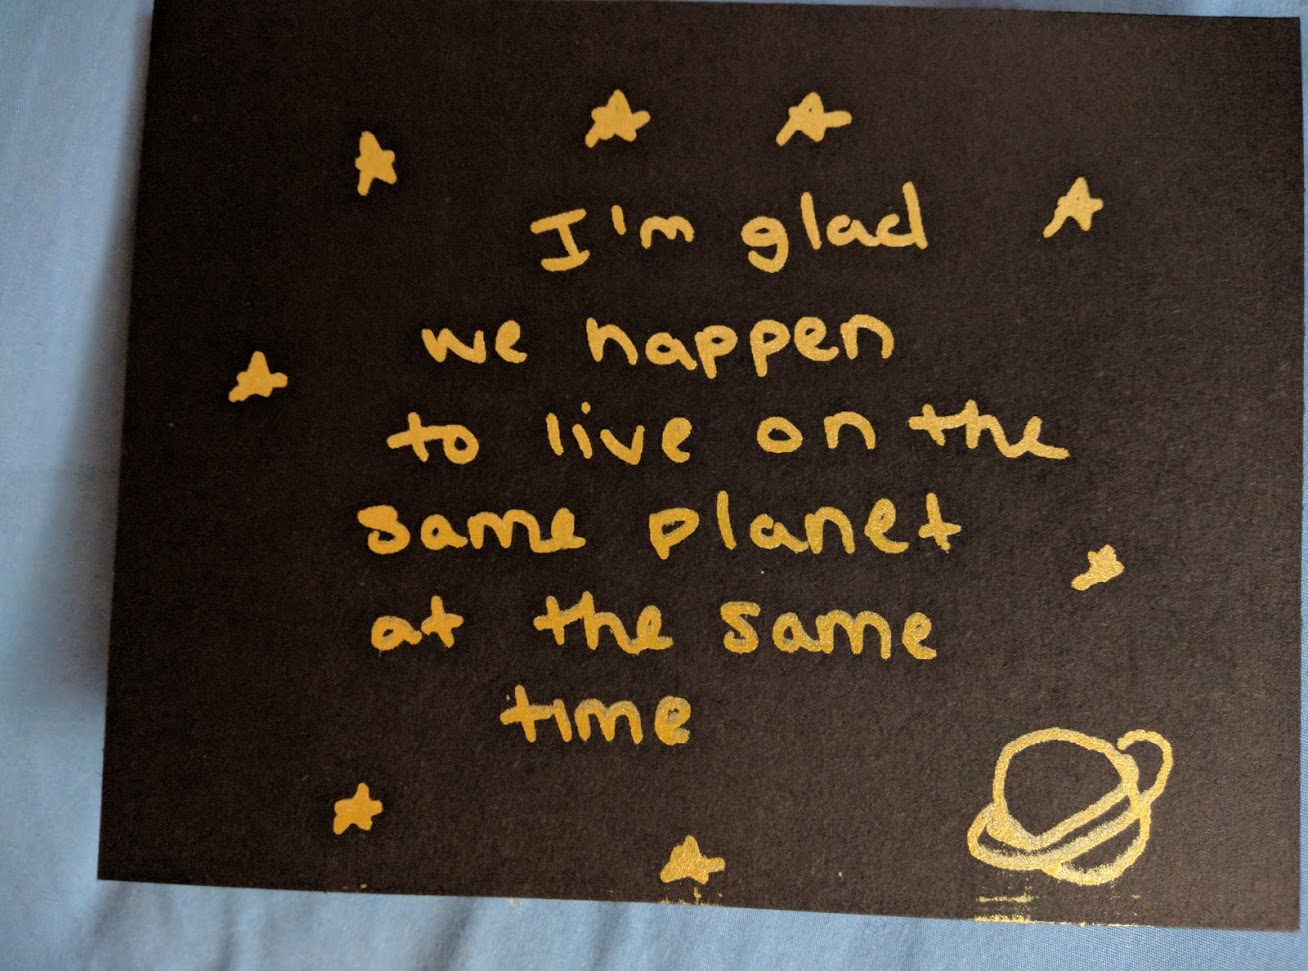 I'm glad
we happen
to live on the
same planet
at the same
time